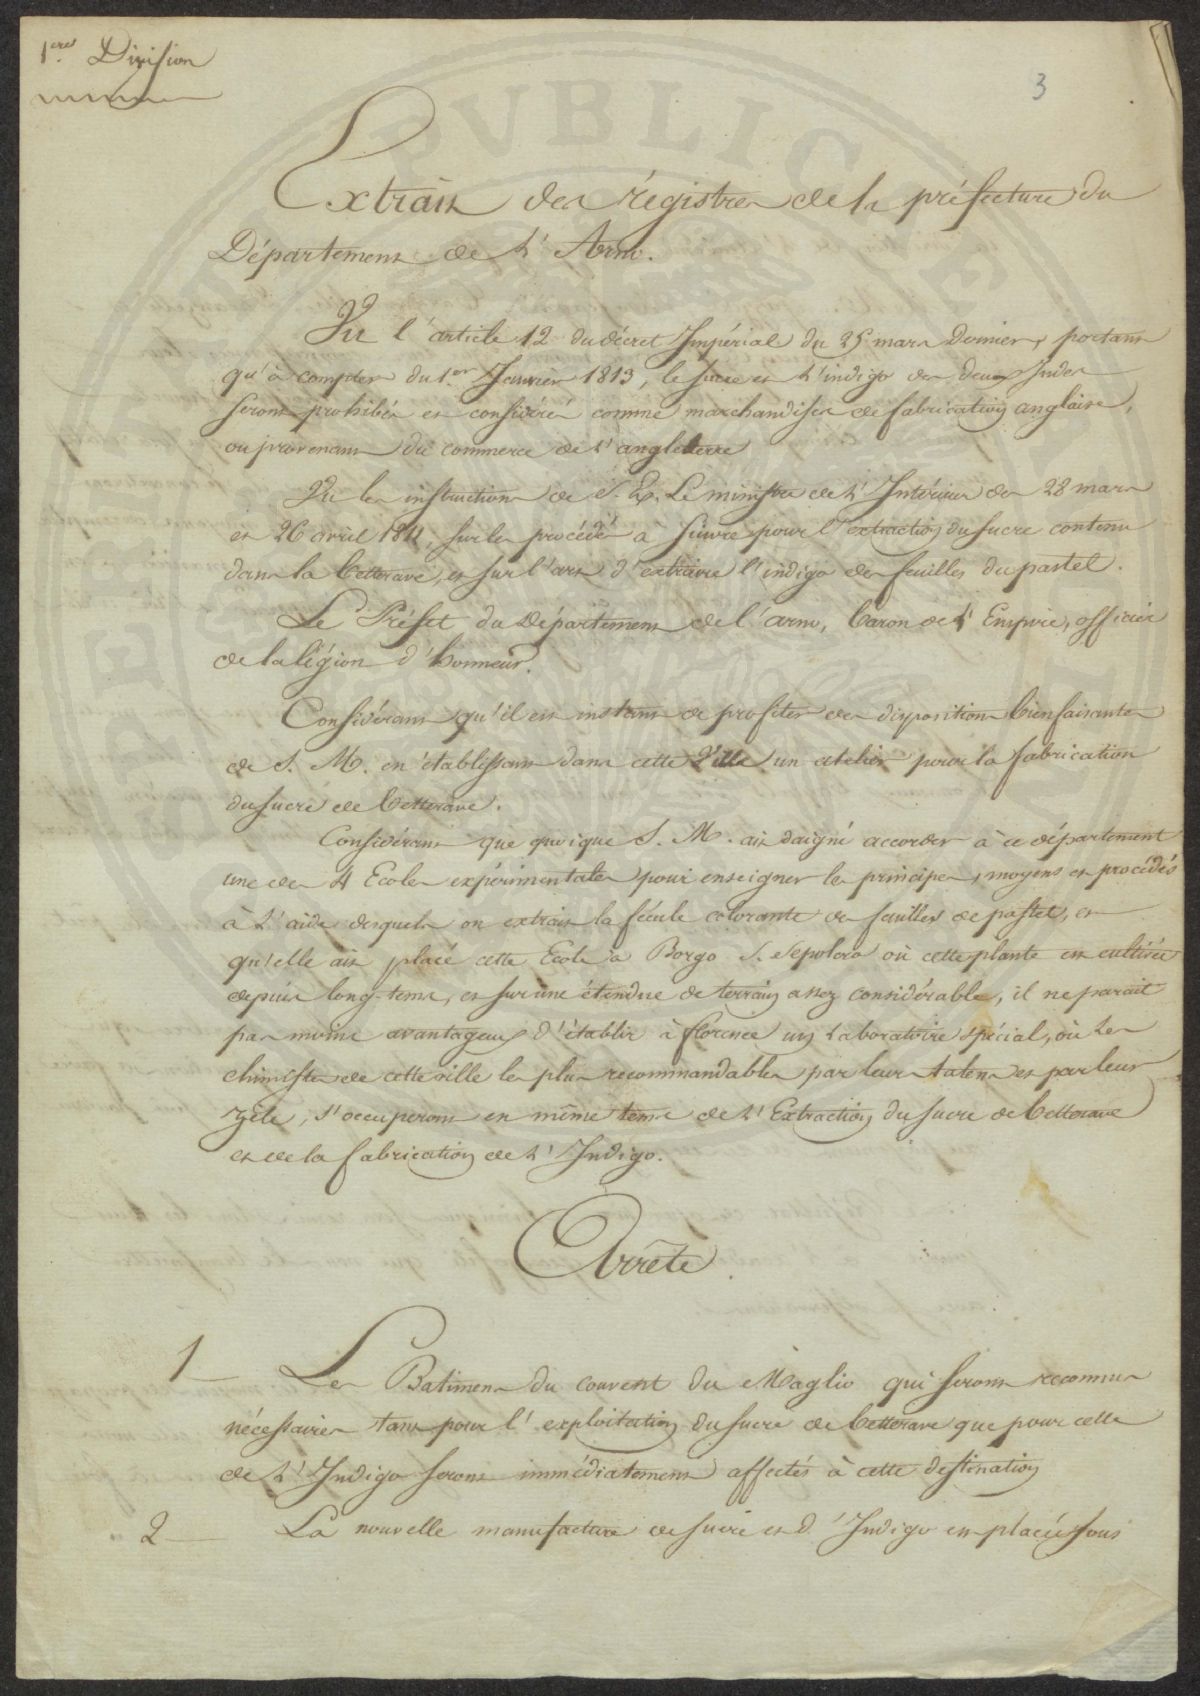 1.ere Division
3
Extrait des régistres de la préfecture du
Département de L'Arno.
Vu l'article 12 du décret Impérial du 25 mars Dernier, portant
qu'à compter du 1.er Janvier 1813, le sucre et L'indigo des deux Indes
seront prohibés et considérés comme marchandises de fabrication anglaise,
ou provenant du commerce de L'angleterre
Vu les instructions de S. E. Le ministre de L'Intérieur des 28 mars
et 26 avril 1811, sur les procédés à suivre pour l'extraction du sucre contenu
dans la betterave, et sur l'art d'extraire l'indigo des feuilles du pastel.
Le Préfet du Département de l'arno, baron de L'Empire, officier
de la légion d'honneur.
Considérant qu'il est instant de profiter des dispositions bienfaisantes
de S. M. en établissant dans cette Ville un atelier pour la fabrication
du sucre de betterave.
Considérant que quoique S. M. ait daigné accorder à ce département
une des 4 Ecoles expérimentales pour enseigner les principes, moyens et procédés
à L'aide desquels on extrait la fécule colorante des feuilles de pastel, et
qu'elle ait placé cette Ecole à Borgo S. Sepolcro où cette plante est cultivée
depuis long-tems, et sur une étendue de terrain assez considérable, il ne parait
pas moins avantageux d'établir à florence un Laboratoire spécial, où Les
chimistes de cette ville les plus recommandables par leurs talens et par leur
zèle, s'occuperont en même tems de L'Extraction du sucre de betterave
et de la fabrication de L'Indigo.
Arrête
1 Les Batimens du couvent du Maglio qui seront reconnus
nécessaires tant pour l'exploitation du sucre de betterave que pour celle
de L'Indigo seront immédiatement affectés à cette destination
2 La nouvelle manufacture de sucre et d'Indigo est placée sous